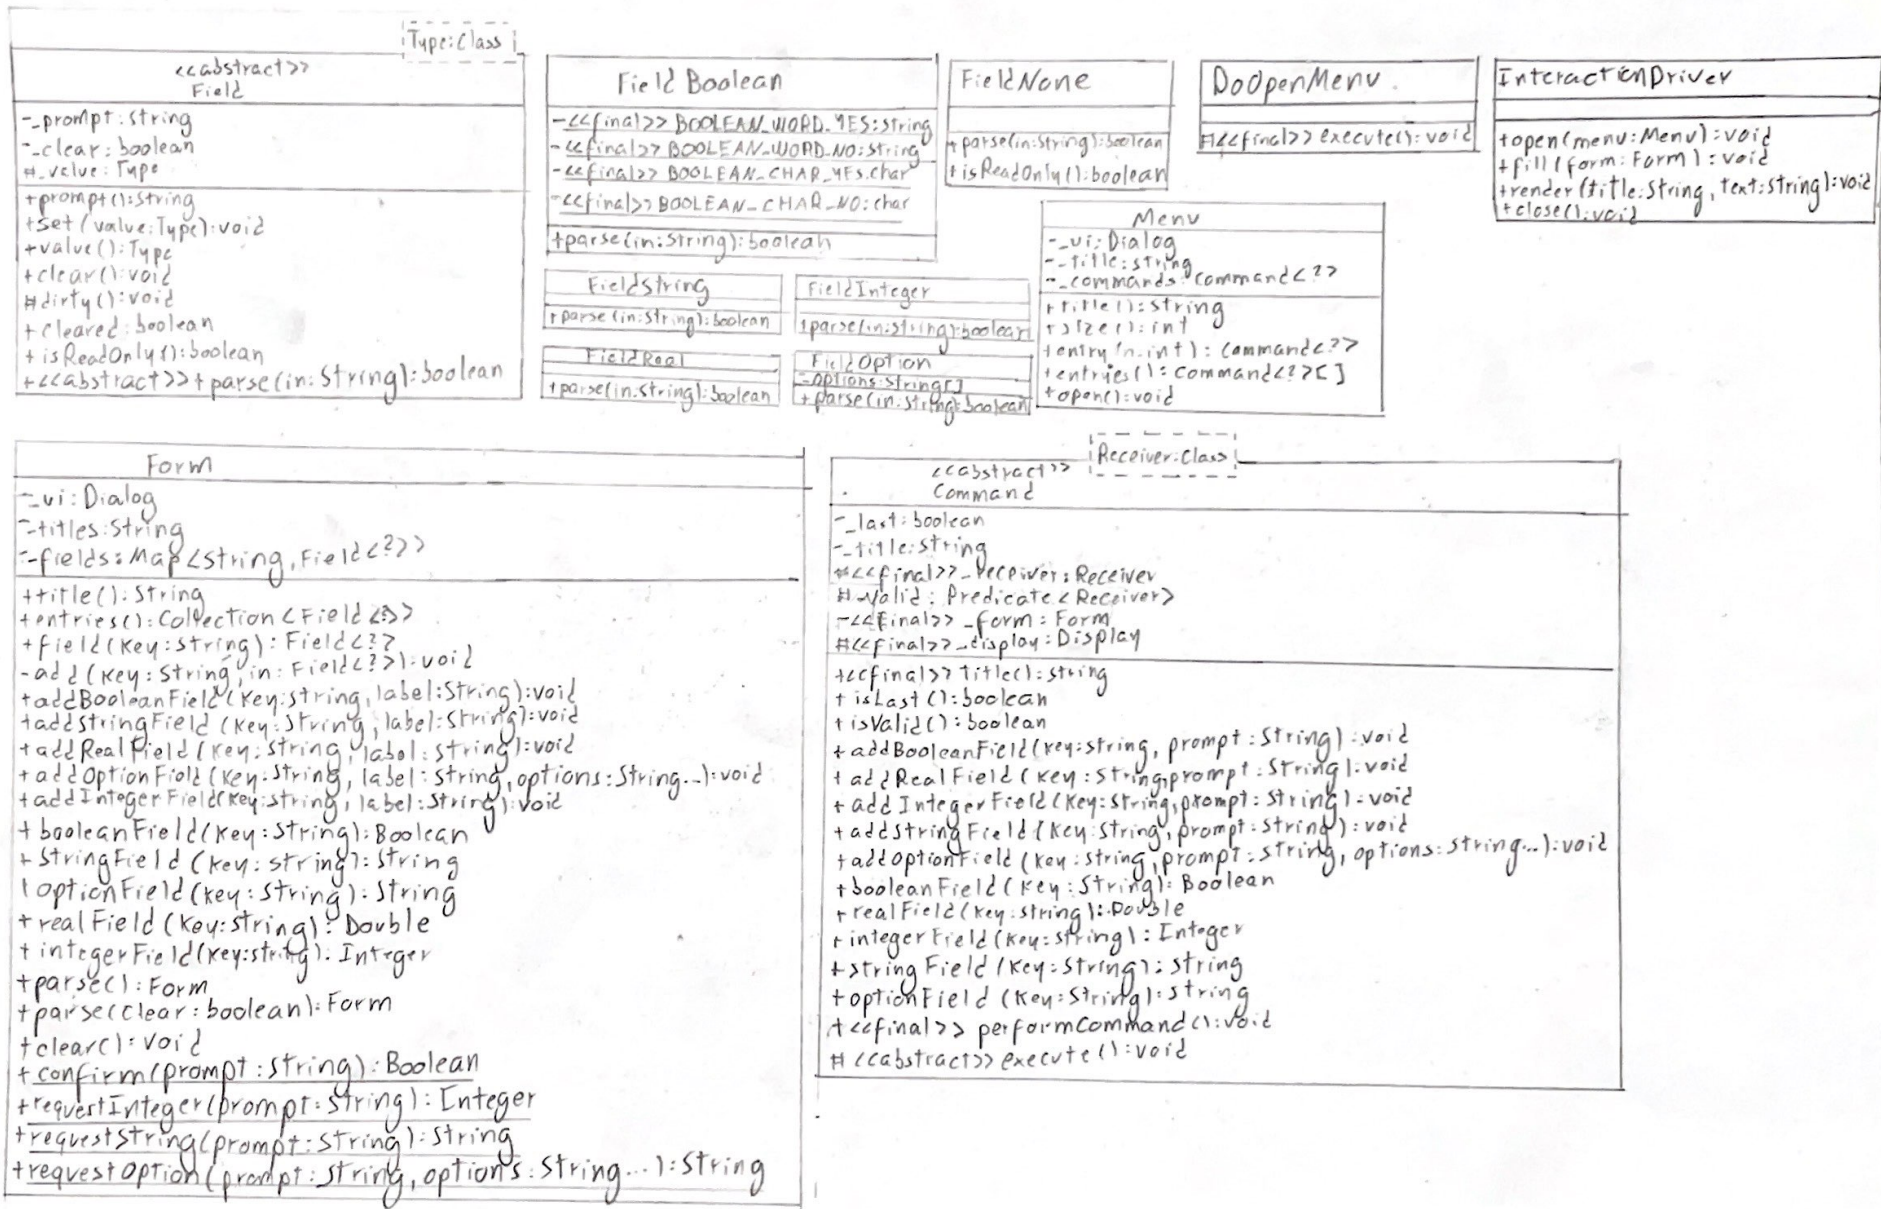 Type:Class
<<abstract>>
Field
-_prompt:String
-_clear:boolean
#_value:Type
+prompt():String
+set(value:Type):void
+value():Type
+clear():void
#dirty():void
+cleared:boolean
+isReadOnly():boolean
+<<abstract>>+parse(in:String):boolean
Field Boolean
-<<final>> BOOLEAN_WORD_YES:String
-<<final>> BOOLEAN_WORD_NO:String
-<<final>> BOOLEAN_CHAR_YES:char
-<<final>> BOOLEAN_CHAR_NO:char
+parse(in:String):boolean
FieldNone
+parse(in:String):boolean
+isReadOnly():boolean
DoOpenMenu
#<<final>> execute():void
InteractionDriver
+open(menu:Menu):void
+fill(form:Form):void
+render(title:String, text:String):void
+close():void
FieldString
+parse(in:String):boolean
FieldInteger
+parse(in:String):boolean
FieldReal
+parse(in:String):boolean
FieldOption
-options:String[]
+parse(in:String):boolean
Menu
-_ui:Dialog
-_title:String
-_commands:Command<?>
+title():String
+size():int
+entry(n:int):Command<?>
+entries():Command<?>[]
+open():void
Form
-_ui:Dialog
-titles:String
-_fields:Map<String,Field<?>>
+title():String
+entries():Collection<Field<?>>
+field(key:String):Field<?>
-add(key:String,in:Field<?>):void
+addBooleanField(key:String,label:String):void
+addStringField(key:String,label:String):void
+addRealField(key:String,label:String):void
+addOptionField(key:String, label:String,options:String...):void
+addIntegerField(key:String,label:String):void
+booleanField(key:String):Boolean
+StringField(key:String):String
+optionField(key:String):String
+realField(key:String):Double
+integerField(key:String):Integer
+parse():Form
+parse(clear:boolean):Form
+clear():void
+confirm(prompt:String):Boolean
+requestInteger(prompt:String):Integer
+requestString(prompt:String):String
+requestOption(prompt:String, options:String...):String
Receiver:Class
<<abstract>>
Command
-_last:boolean
-_title:String
#<<final>>_receiver:Receiver
#_valid:Predicate<Receiver>
-<<final>>_form:Form
#<<final>>_display:Display
+<<final>> title():String
+isLast():boolean
+isValid():boolean
+addBooleanField(key:String, prompt:String):void
+addRealField(key:String,prompt:String):void
+addIntegerField(key:String,prompt:String):void
+addStringField(key:String,prompt:String):void
+addOptionField(key:String,prompt:String, options:String...):void
+booleanField(key:String):Boolean
+realField(key:String):Double
+integerField(key:String):Integer
+stringField(key:String):String
+optionField(key:String):String
+<<final>> performCommand():void
#<<abstract>> execute():void